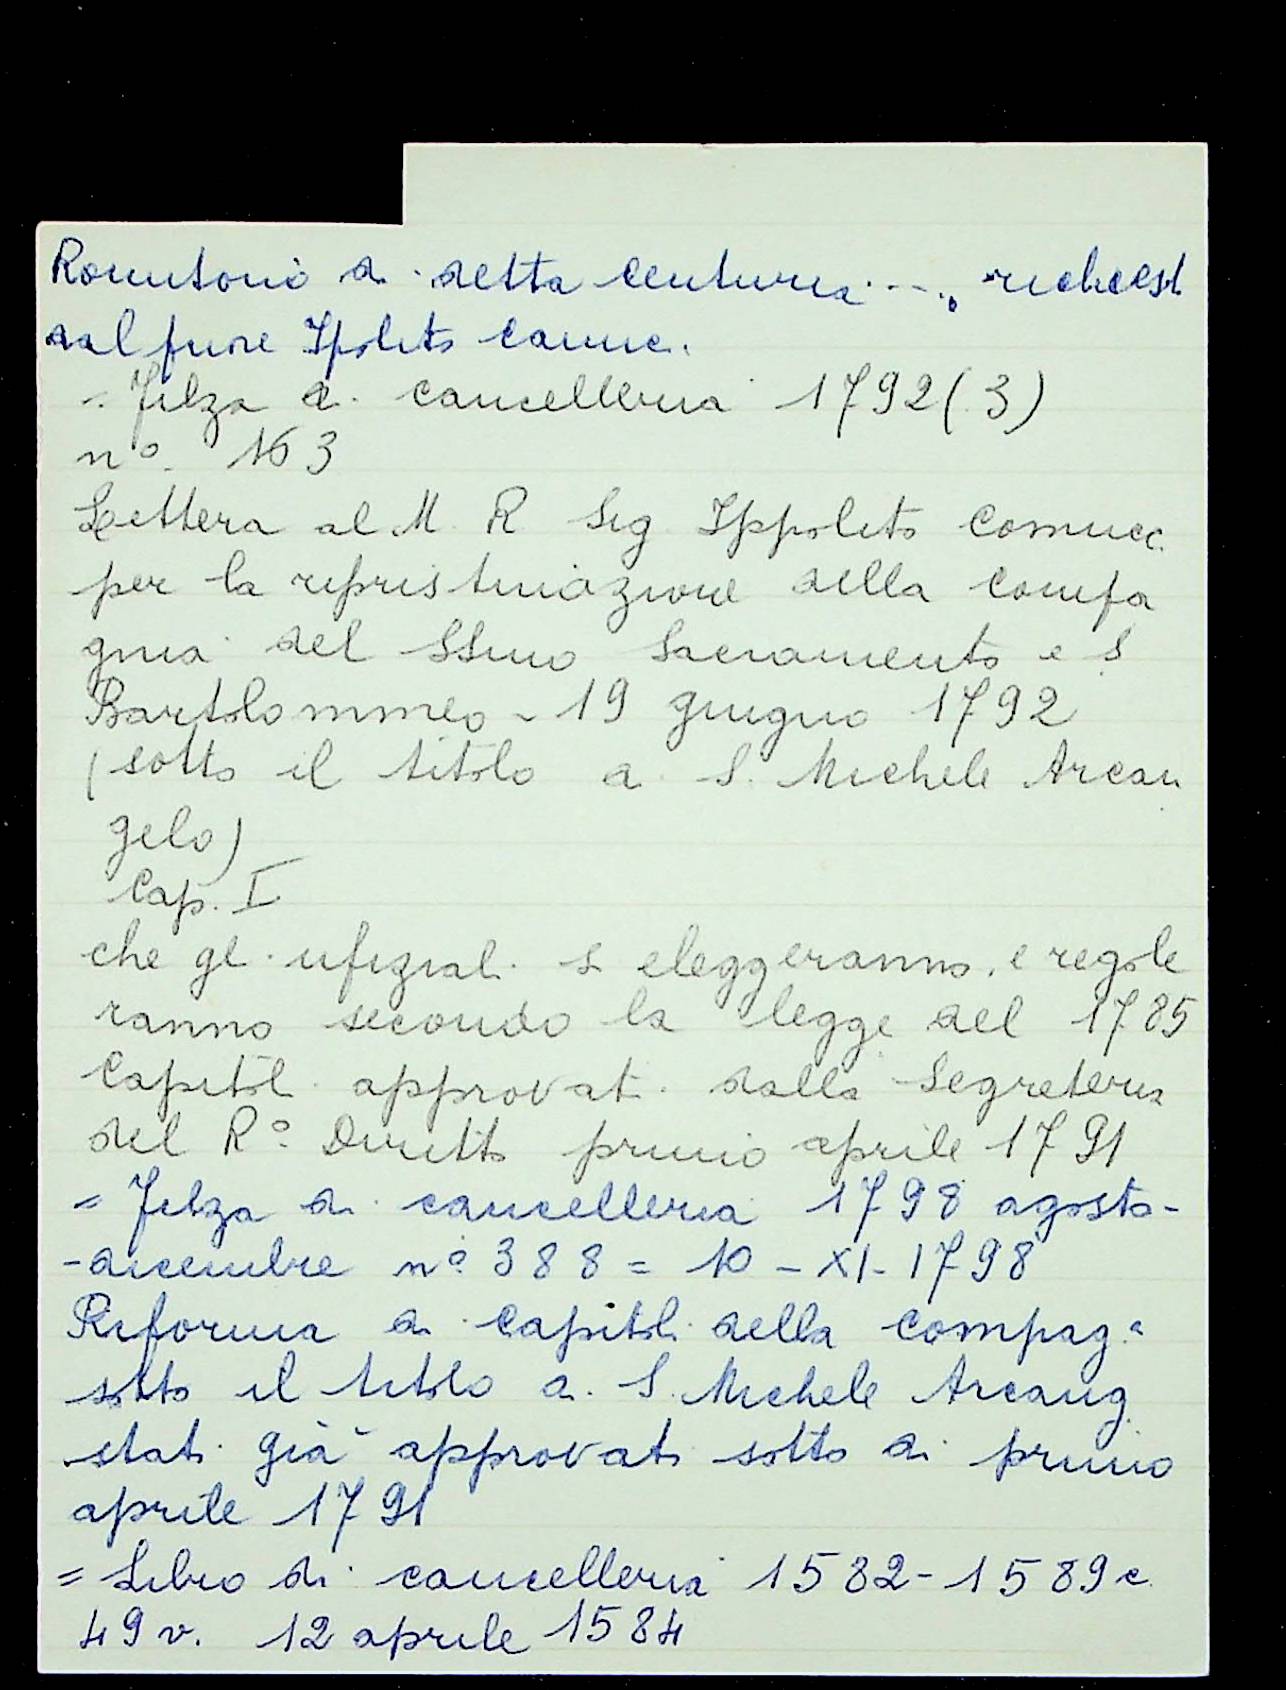 Romitorio di detta centuria...., richiest
dal priore Ipolito Comuc.
= Filza di cancelleria 1792 (3)
nº. 163
Lettera al M. R Sig Ippolito Comucc.
per la ripristinazione della compa
gnia del SSmo Sacramento e S
Bartolommeo - 19 giugno 1792
(sotto il titolo di S. Michele Arcan
gelo)
Cap. I
che gli ufiziali si eleggeranno, e regole
ranno secondo la legge del 1785
Capitoli approvati dalla Segreteria
del Rº Diritto primo aprile 1791
= Filza di cancelleria 1798 agosto-
-dicembre nº 388 = 10 - XI - 1798
Riforma di capitoli della compag.ª
sotto il titolo di S. Michele Arcang.
stati già approvati sotto di primo
aprile 1791
= Libro di cancelleria 1582-1589 c.
49 v. 12 aprile 1584